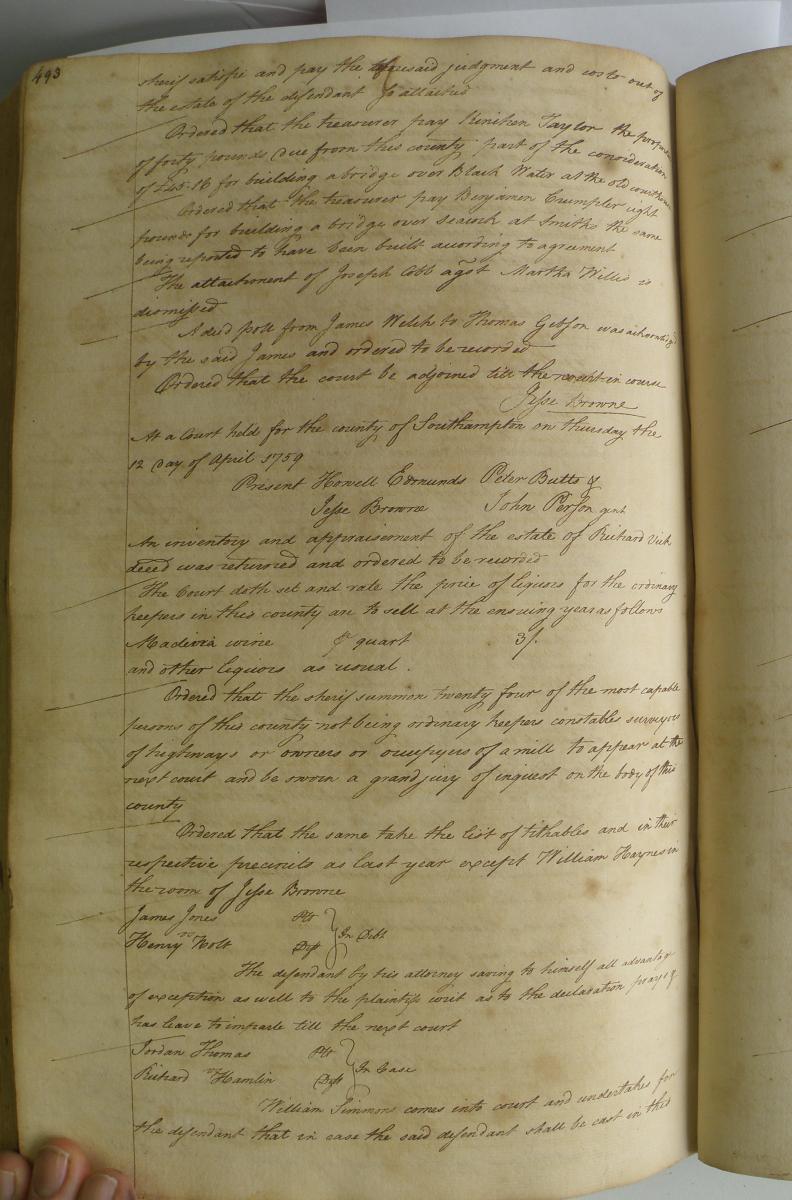 493
sherif satisfie and pay the aforesaid judgment and costs out of
the estate of the defendant so attached
Ordered that the treasurer pay Kinchen Taylor the
of forty pounds due from this county part of the consideration
of £45.16 for building a bridge over Black Water at the old courthouse
Ordered that the treasurer pay Benjamin Crumpler eight
pounds for building a bridge over seacock at Smiths the same
being reported to have been built according to agreement
The attachment of Joseph Cobb agst Martha Willis is
dismissed
A deed poll from James Welch to Thomas Gibson was
by the said James and ordered to be recorded
Ordered that the court be adjorned till the court in course
Jesse Browne
At a Court held for the county of Southampton on thursday the
12 Day of April 1759
Present Howell Edmunds Peter Butts &
Jesse Browne John Person gent
An inventory and appraisement of the estate of Richard Vick
deced was returned and ordered to be recorded
The Court doth set and rate the price of liquors for the ordinary
keepers in this county are to sell at the ensuing year as follows
Madeira wine ⅌ quart 3/.
and other liquors as usual.
Ordered that the sherif summon twenty four of the most capable
persons of this county not being ordinary keepers constables surveyors
of highways or owners or occupyers of a mill to appear at the
next court and be sworn a grand jury of inquest on the body of this
county
Ordered that the same take the list of tithables and in their
respective precincts as last year except William Haynes in
the room of Jesse Browne
James Jones Plt
vs } In Debt
Henry Holt Deft
The defendant by his attorney saving to himself all advantag
of exception as well to the plaintifs writ as to the declaration prays &
has leave to imparle till the next court
Jordan Thomas Plt
vs } In Case
Richard Hamlin Deft
William Simmons comes into court and undertakes for
the defendant that in case the said defendant shall be cast in this